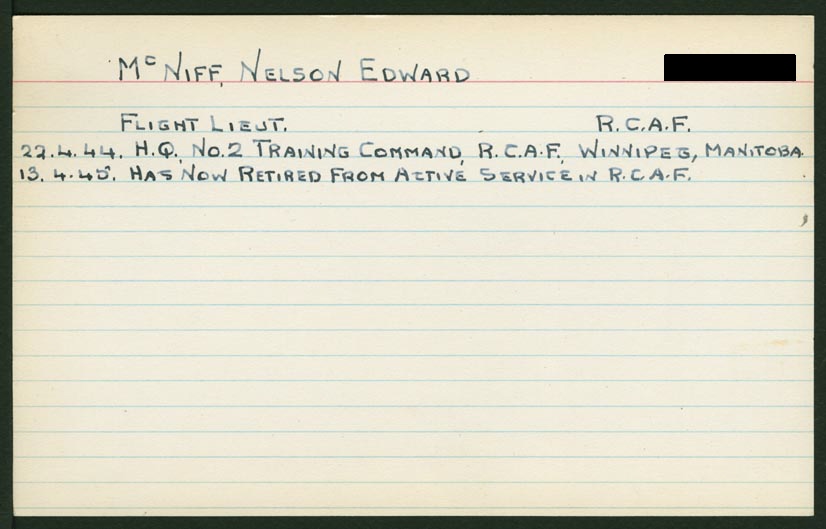 McNIFF, NELSON EDWARD
FLIGHT LIEUT. R.C.A.F.
22.4.44. H.Q., NO.2 TRAINING COMMAND, R.C.A.F., WINNIPEG, MANITOBA.
13.4.45. HAS NOW RETIRED FROM ACTIVE SERVICE IN R.C.A.F.